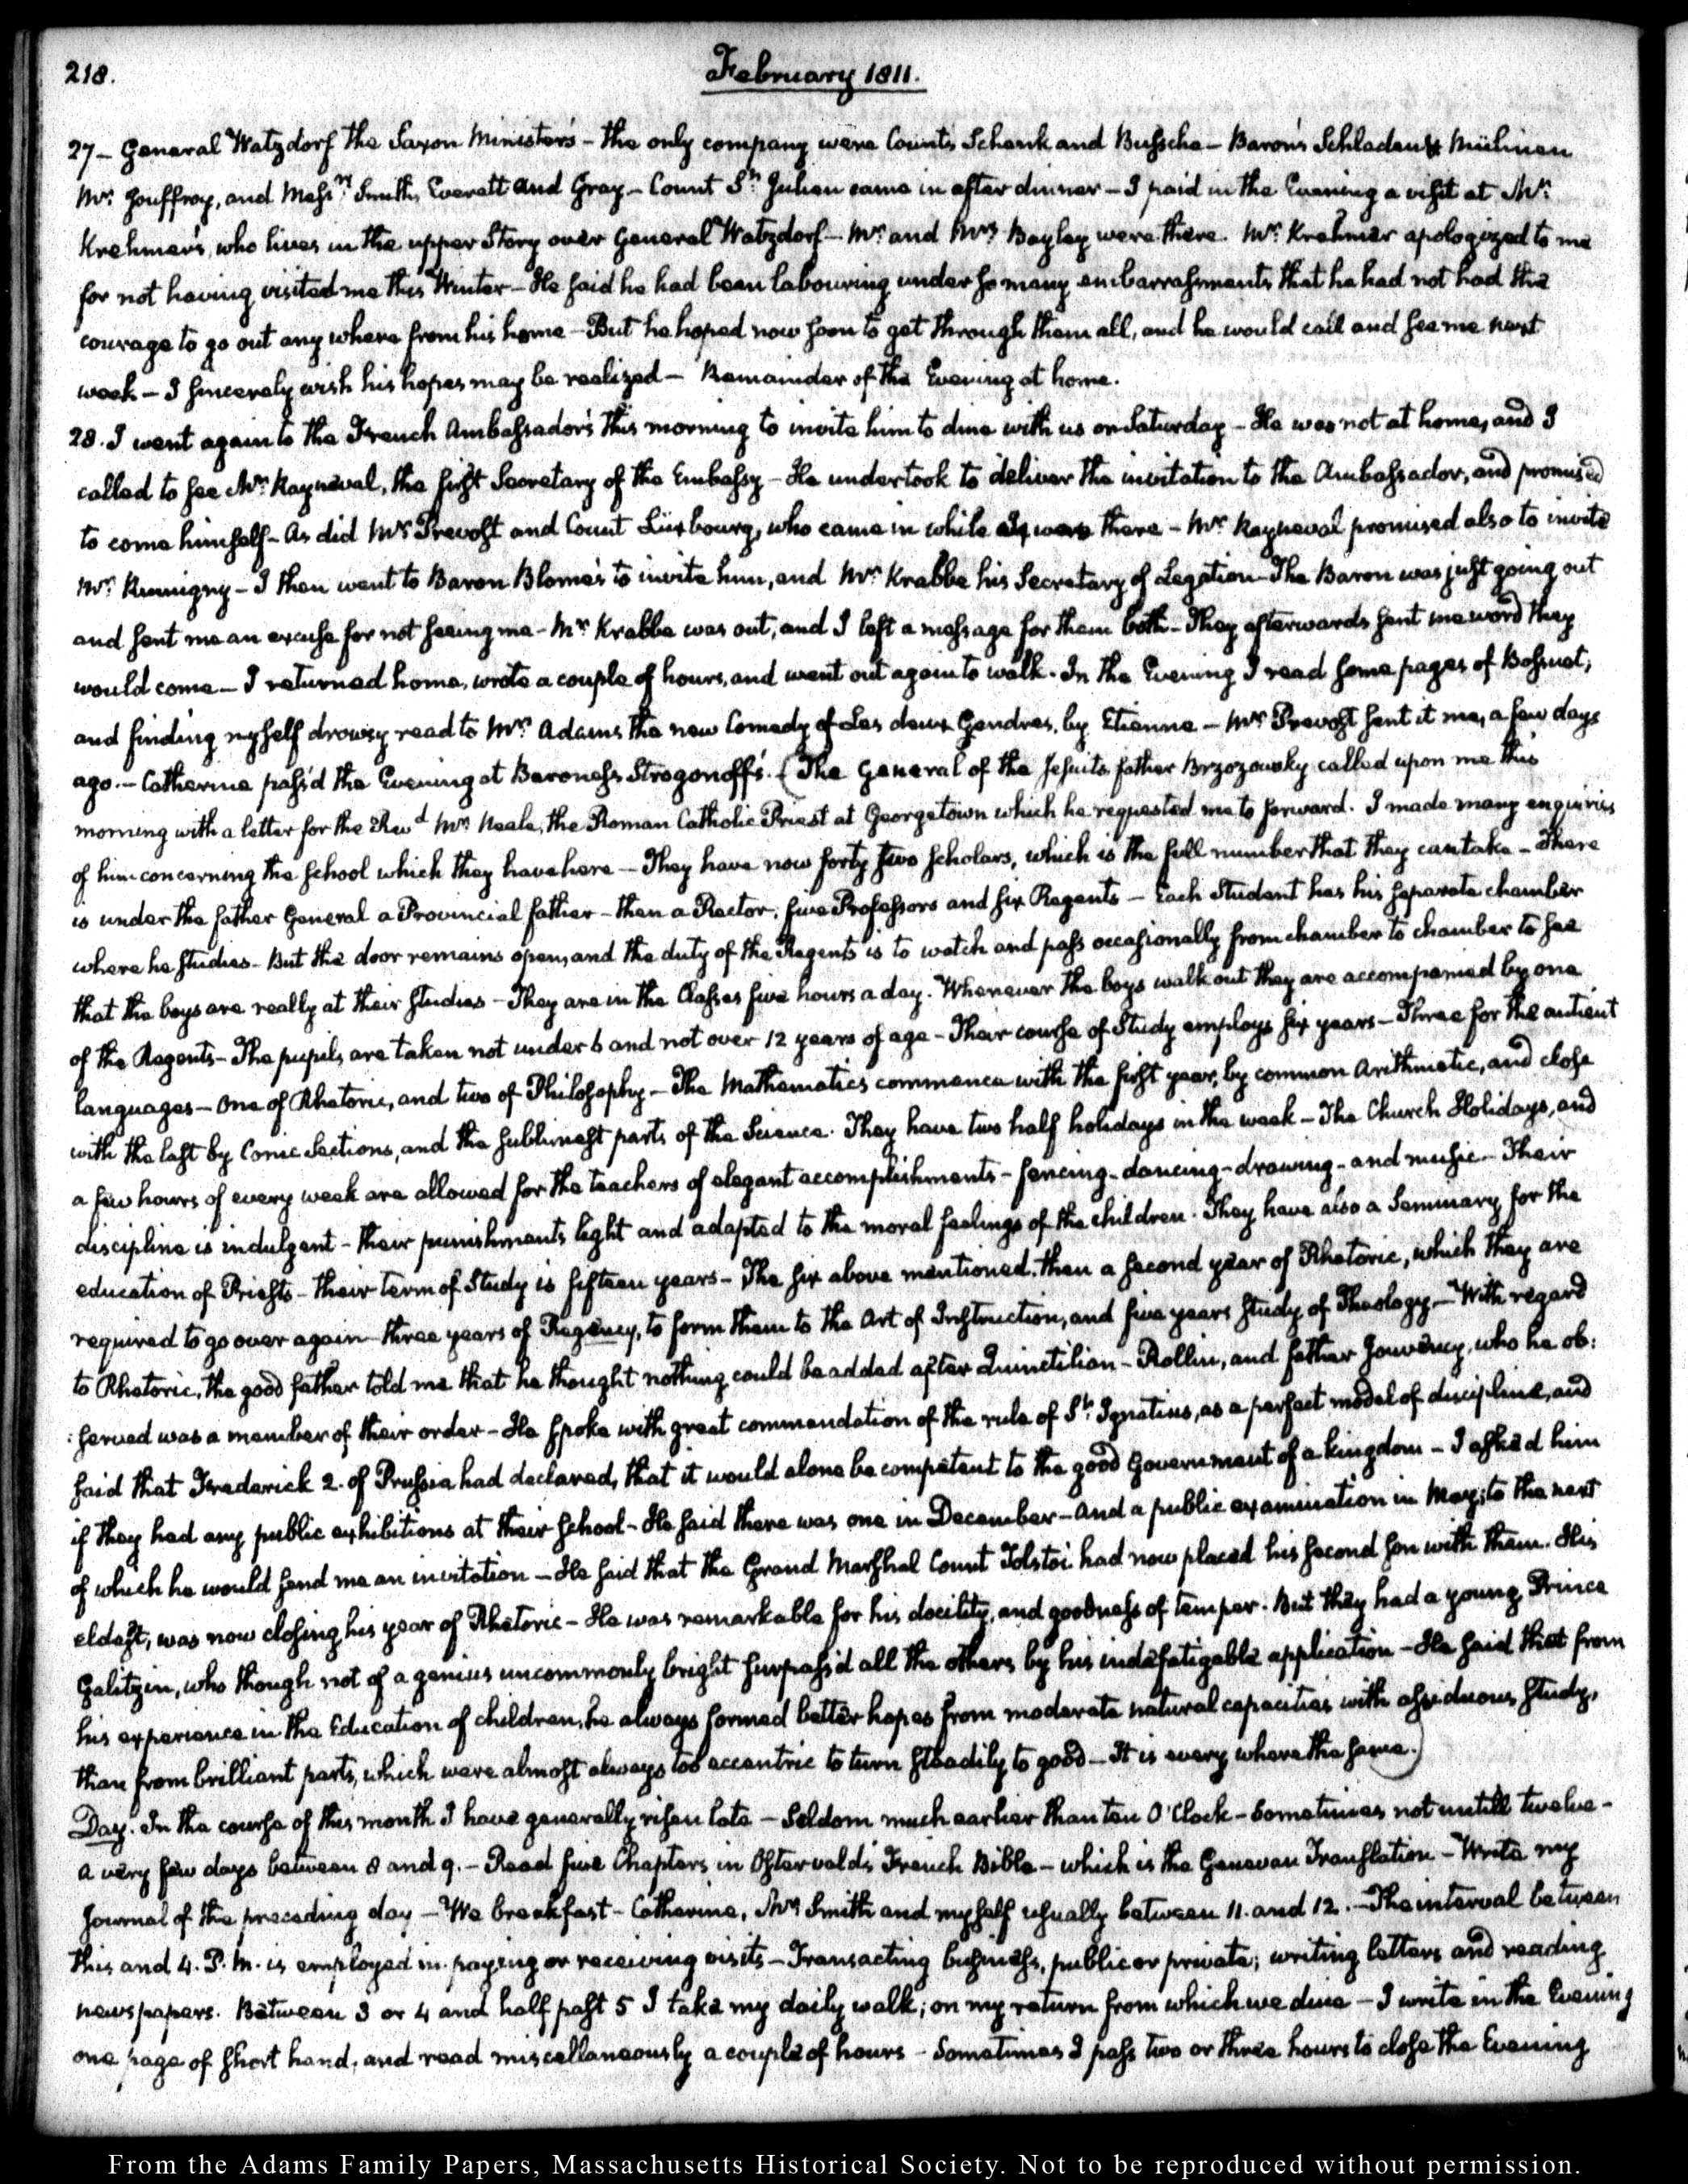 218.
February 1811.
27 – General Watzdorf the Saxon Minister's – the only company were Counts Schenk and Bussche – Barons Schladen & Mülinen
Mr. Jouffroy, and Messrs. Smith, Everett and Gray – Count St. Julien came in after dinner – I paid in the Evening a visit at Mr.
Krehmer's, who lives in the upper Story over General Watzdorf – Mr. and Mrs. Bayley were there. Mr. Krehmer apologized to me
for not having visited me this Winter – He said he had been labouring under so many embarrassments that he had not had the
courage to go out any where from his home – But he hoped now soon to get through them all, and he would call and see me next
week – I sincerely wish his hopes may be realized – Remainder of the Evening at home.
28. I went again to the French Ambassador's this morning to invite him to dine with us on Saturday – He was not at home, and I
called to see Mr. Rayneval, the first Secretary of the Embassy – He undertook to deliver the invitation to the Ambassador, and promised
to come himself – As did Mr. Prevost and Count Luxbourg, who came in while I was there – Mr. Rayneval promised also to invite
Mr. Rumigny – I then went to Baron Blome's to invite him, and Mr. Krabbe his Secretary of Legation – The Baron was just going out
and sent me an excuse for not seeing me – Mr. Krabbe was out, and I left a message for them both – They afterwards sent me word they
would come – I returned home, wrote a couple of hours, and went out again to walk. In the Evening I read some pages of Bossuet;
and finding myself drowsy read to Mrs. Adams the new Comedy of Les deux Gendres, by Etienne – Mr. Prevost sent it me, a few days
ago. – Catherine pass'd the Evening at Baroness Strogonoff's. (The General of the Jesuits father Brzozowsky called upon me this
morning with a letter for the Revd. Mr. Neale, the Roman Catholic Priest at Georgetown which he requested me to forward. I made many enquiries
of him concerning the school which they have here – They have now forty two scholars, which is the full number that they can take – There
is under the father General a Provincial father – then a Rector, five Professors and six Regents – Each Student has his separate chamber
where he studies – But the door remains open, and the duty of the Regents is to watch and pass occasionally from chamber to chamber to see
that the boys are really at their studies – They are in the Classes five hours a day. Whenever the boys walk out they are accompanied by one
of the Regents – The pupils are taken not under 6 and not over 12 years of age – Their course of Study employs six years – Three for the antient
languages – One of Rhetoric, and two of Philosophy – The Mathematics commence with the first year, by common Arithmetic, and close
with the last by Conic Sections, and the sublimest parts of the Science. They have two half holidays in the week – The Church Holidays, and
a few hours of every week are allowed for the teachers of elegant accomplishments – fencing – dancing – drawing – and music – Their
discipline is indulgent – their punishments light and adapted to the moral feelings of the children. They have also a Seminary for the
education of Priests – their term of Study is fifteen years – The six above mentioned, then a second year of Rhetoric, which they are
required to go over again – three years of Regency, to form them to the Art of Instruction, and five years study of Theology – With regard
to Rhetoric, the good father told me that he thought nothing could be added after Quinctilian – Rollin, and father Jouvency, who he ob:
:served was a member of their order – He spoke with great commendation of the rule of St. Ignatius, as a perfect model of discipline, and
said that Frederick 2. of Prussia had declared, that it would alone be competent to the good Government of a kingdom – I asked him
if they had any public exhibitions at their school – He said there was one in December – and a public examination in May; to the next
of which he would send me an invitation – He said that the Grand Marshal Count Tolstoi had now placed his second son with them. His
eldest, was now closing his year of Rhetoric – He was remarkable for his docility, and goodness of temper. But they had a young Prince
Galitzin, who though not of a genius uncommonly bright surpass'd all the others by his indefatigable application – He said that from
his experience in the Education of children, he always formed better hopes from moderate natural capacities with assiduous study,
than from brilliant parts, which were almost always too eccentric to turn steadily to good – It is every where the same.)
Day. In the course of this month I have generally risen late – Seldom much earlier than ten O'Clock – Sometimes not untill twelve –
a very few days between 8 and 9. – Read five Chapters in Ostervald's French Bible – which is the Genevan Translation – Write my
Journal of the preceding day – We breakfast – Catherine, Mr. Smith and myself usually between 11. and 12. – The interval between
this and 4. P.M. is employed in paying or receiving visits – Transacting business, public or private; writing letters and reading
newspapers. Between 3 or 4 and half past 5 I take my daily walk; on my return from which we dine – I write in the Evening
one page of short hand, and read miscellaneously a couple of hours – Sometimes I pass two or three hours to close the Evening
From the Adams Family Papers, Massachusetts Historical Society. Not to be reproduced without permission.